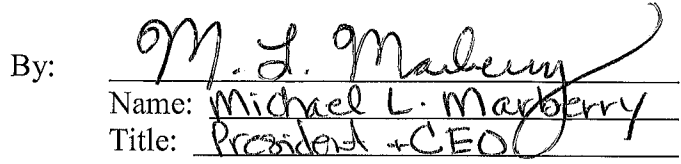 By: M. L. Marberry
Name: Michael L. Marberry
Title: President + CEO